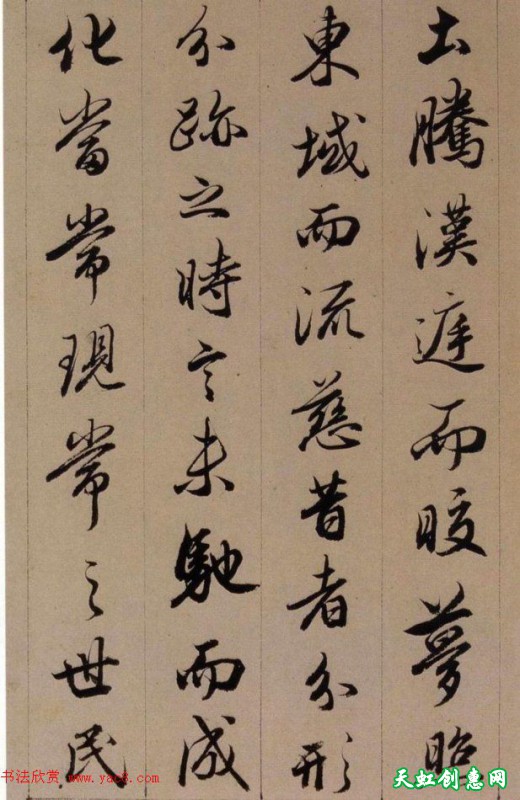 土騰漢庭而皎夢照
東域而流慈昔者分形
分跡之時言未馳而成
化當常現常之世民
书法欣赏 www.yac8.com
天虹创惠网